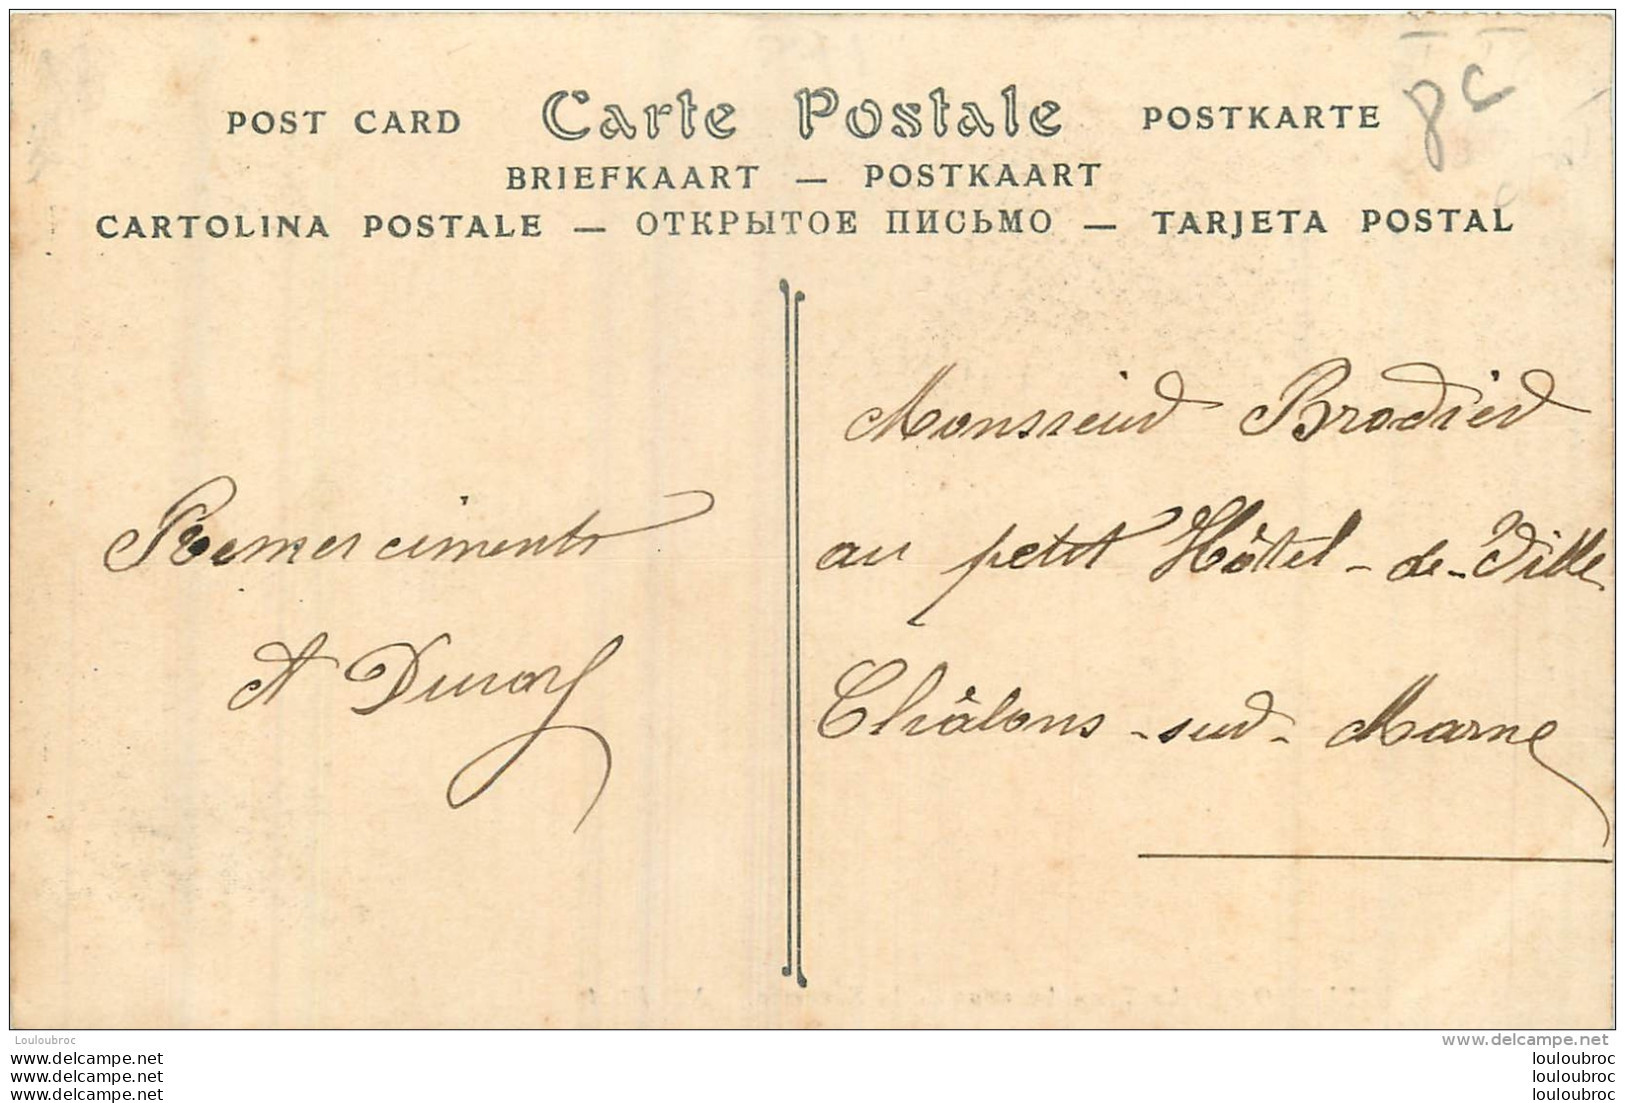 8c
POST CARD Carte Postale POSTKARTE
BRIEFKAART — POSTKAART
CARTOLINA POSTALE — ОТКРЫТОЕ ПИСЬМО — TARJETA POSTAL
Remerciments
A Duval
Monsieur Brodier
au petit Hôtel-de-Ville
Châlons-sur-Marne
Louloubroc
www.delcampe.net
www.delcampe.net
www.delcampe.net
www.delcampe.net
louloubroc
louloubroc
louloubroc